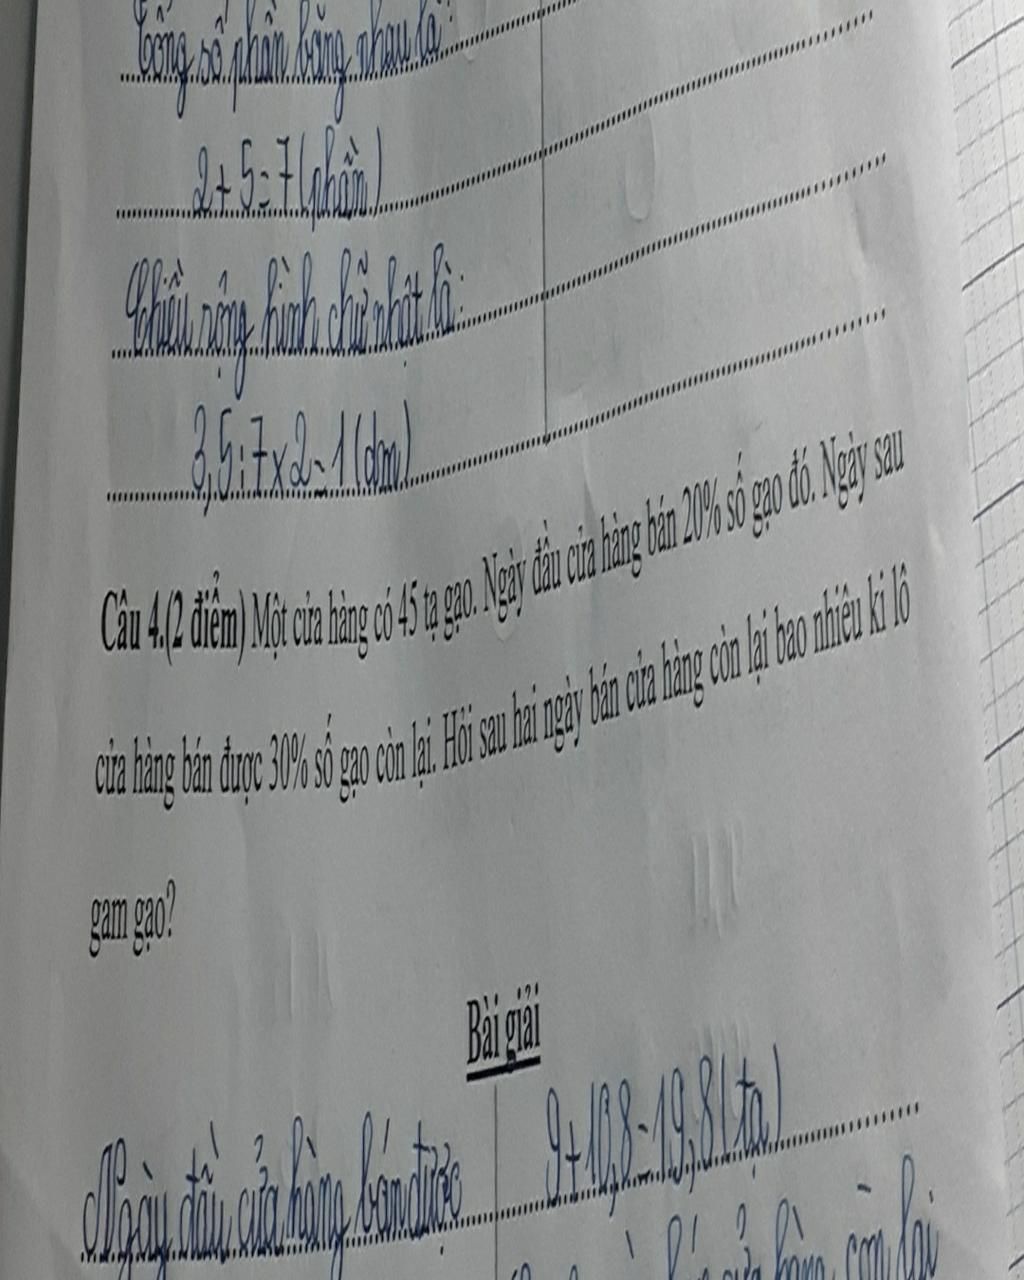 Tổng số phần bằng nhau là:
2 + 5 = 7 (phần)
Chiều rộng hình chữ nhật là:
3,5 : 7 x 2 = 1 (dm)
Câu 4.(2 điểm) Một cửa hàng có 45 tạ gạo. Ngày đầu cửa hàng bán 20% số gạo đó. Ngày sau
cửa hàng bán được 30% số gạo còn lại. Hỏi sau hai ngày bán cửa hàng còn lại bao nhiêu ki lô
gam gạo?
Bài giải
Ngày đầu cửa hàng bán được
9 + 10,8 = 19,8 (tạ)
bán cửa hàng còn lại